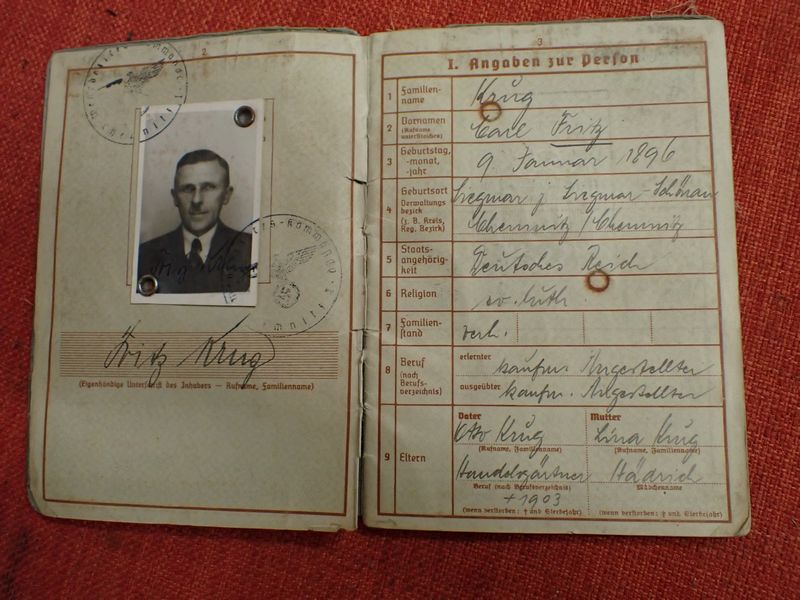 2
Fritz Krug
Fritz Krug
(Eigenhändige Unterschrift des Inhabers — Rufname, Familienname)
3
I. Angaben zur Person
1 Familien-
name
Krug
2 Vornamen
(Rufname
unterstreichen)
Carl Fritz
3 Geburtstag,
-monat,
-jahr
9. Januar 1896
4 Geburtsort
Verwaltungs-
bezirk
(z. B. Kreis,
Reg. Bezirk)
Siegmar j. Siegmar-Schönau
Chemnitz / Chemnitz
5 Staats-
angehörig-
keit
Deutsches Reich
6 Religion
ev. luth.
7 Familien-
stand
verh.
8 Beruf
(nach
Berufs-
verzeichnis)
erlernter
kaufm. Angestellter
ausgeübter
kaufm. Angestellter
9 Eltern
Vater
Otto Krug
(Rufname, Familienname)
Handelsgärtner
Beruf (nach Berufsverzeichnis)
+ 1903
(wenn verstorben: † und Sterbejahr)
Mutter
Lina Krug
(Rufname, Familienname)
Hädrich
Mädchenname
(wenn verstorben: † und Sterbejahr)